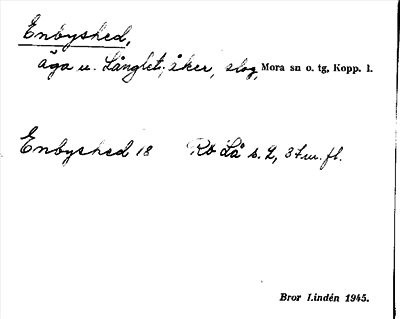 Enbyshed,
äga u. Långlet; åker, slog, Mora sn o. tg, Kopp. l.
Enbyshed 18 Rö Lå s. 2, 37 m. fl.
Bror Lindén 1945.